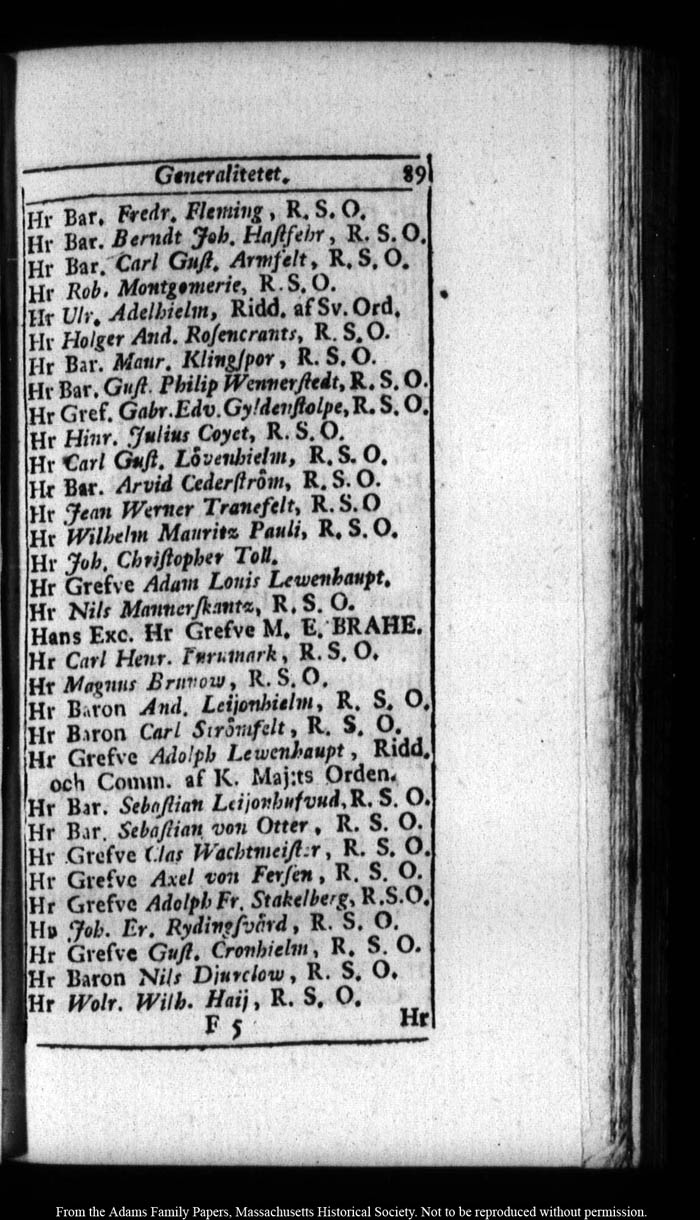 Generalitetet. 89
Hr Bar. Fredr. Fleming, R. S. O.
Hr Bar. Berndt Joh. Haſtfehr, R. S. O.
Hr Bar. Carl Guſt. Armfelt, R. S. O.
Hr Rob. Montgomerie, R. S. O.
Hr Ulr. Adelhielm, Ridd. af Sv. Ord.
Hr Holger And. Roſencrants, R. S. O.
Hr Bar. Maur. Klingſpor, R. S. O.
Hr Bar. Guſt. Philip Wennerſtedt, R. S. O.
Hr Gref. Gabr. Edv. Gyldenſtolpe, R. S. O.
Hr Hinr. Julius Coyet, R. S. O.
Hr Carl Guſt. Lövenhielm, R. S. O.
Hr Bar. Arvid Cederſtröm, R. S. O.
Hr Jean Werner Tranefelt, R. S. O
Hr Wilhelm Mauritz Pauli, R. S. O.
Hr Joh. Chriſtopher Toll.
Hr Grefve Adam Louis Lewenhaupt.
Hr Nils Mannerſkantz, R. S. O.
Hans Exc. Hr Grefve M. E. BRAHE.
Hr Carl Henr. Furumark, R. S. O.
Hr Magnus Brunow, R. S. O.
Hr Baron And. Leijonhielm, R. S. O.
Hr Baron Carl Strömfelt, R. S. O.
Hr Grefve Adolph Lewenhaupt, Ridd.
och Comm. af K. Maj:ts Orden.
Hr Bar. Sebaſtian Leijonhufvud, R. S. O.
Hr Bar. Sebaſtian von Otter, R. S. O.
Hr Grefve Clas Wachtmeiſter, R. S. O.
Hr Grefve Axel von Ferſen, R. S. O.
Hr Grefve Adolph Fr. Stakelberg, R. S. O.
Hr Joh. Er. Rydingſvård, R. S. O.
Hr Grefve Guſt. Cronhielm, R. S. O.
Hr Baron Nils Djurclow, R. S. O.
Hr Wolr. Wilh. Haij, R. S. O.
F 5 Hr
From the Adams Family Papers, Massachusetts Historical Society. Not to be reproduced without permission.